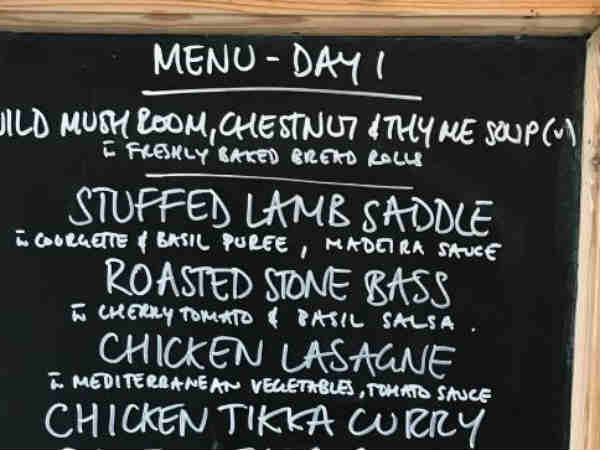 MENU - DAY 1
WILD MUSHROOM, CHESTNUT & THYME SOUP (v)
FRESHLY BAKED BREAD ROLLS
STUFFED LAMB SADDLE
COURGETTE & BASIL PUREE, MADEIRA SAUCE
ROASTED STONE BASS
CHERRY TOMATO & BASIL SALSA.
CHICKEN LASAGNE
MEDITERRANEAN VEGETABLES, TOMATO SAUCE
CHICKEN TIKKA CURRY